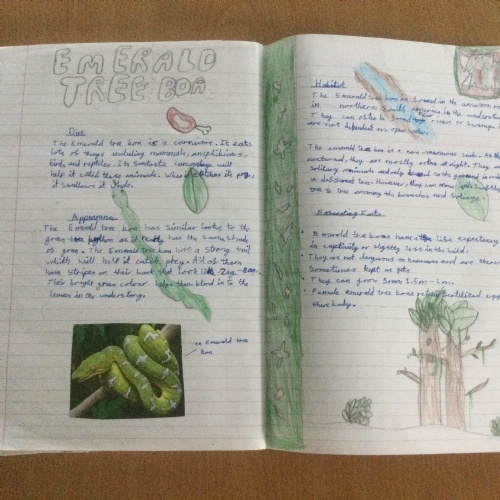 EMERALD
TREE BOA
Diet
The Emerald tree boa is a carnivore. It eats
lots of things including mammals, amphibians,
birds and reptiles. It's fantastic camouflage will
help it catch these animals. When it catches its prey,
it swallows it whole.
Appearance
The Emerald tree boa has similar looks to the
green tree python as it has the same shade
of green. The Emerald tree boa has a strong tail
which will help it catch prey. All of them
have stripes on their back that look like zig-zag.
Their bright green colour helps them blend in to the
leaves in the understory.
an Emerald tree
Boa
Habitat
The Emerald tree boa is found in the amazon
in northern South America in the understory
They can also be found rivers or swamps
are not dependent on open water
The emerald tree boa is a non-venomous snake. As
nocturnal, they are mostly active at night. They are
solitary animals and only to the ground
a different tree. However, they can
tree to tree among the branches and foliage.
Interesting Facts
Emerald tree boas have a life expectancy
in captivity or slightly less in the wild.
They are not dangerous to humans and are there
Sometimes kept as pets.
They can grow from 1.5m-2m.
Female emerald tree boas retain fertilized eggs
there body.